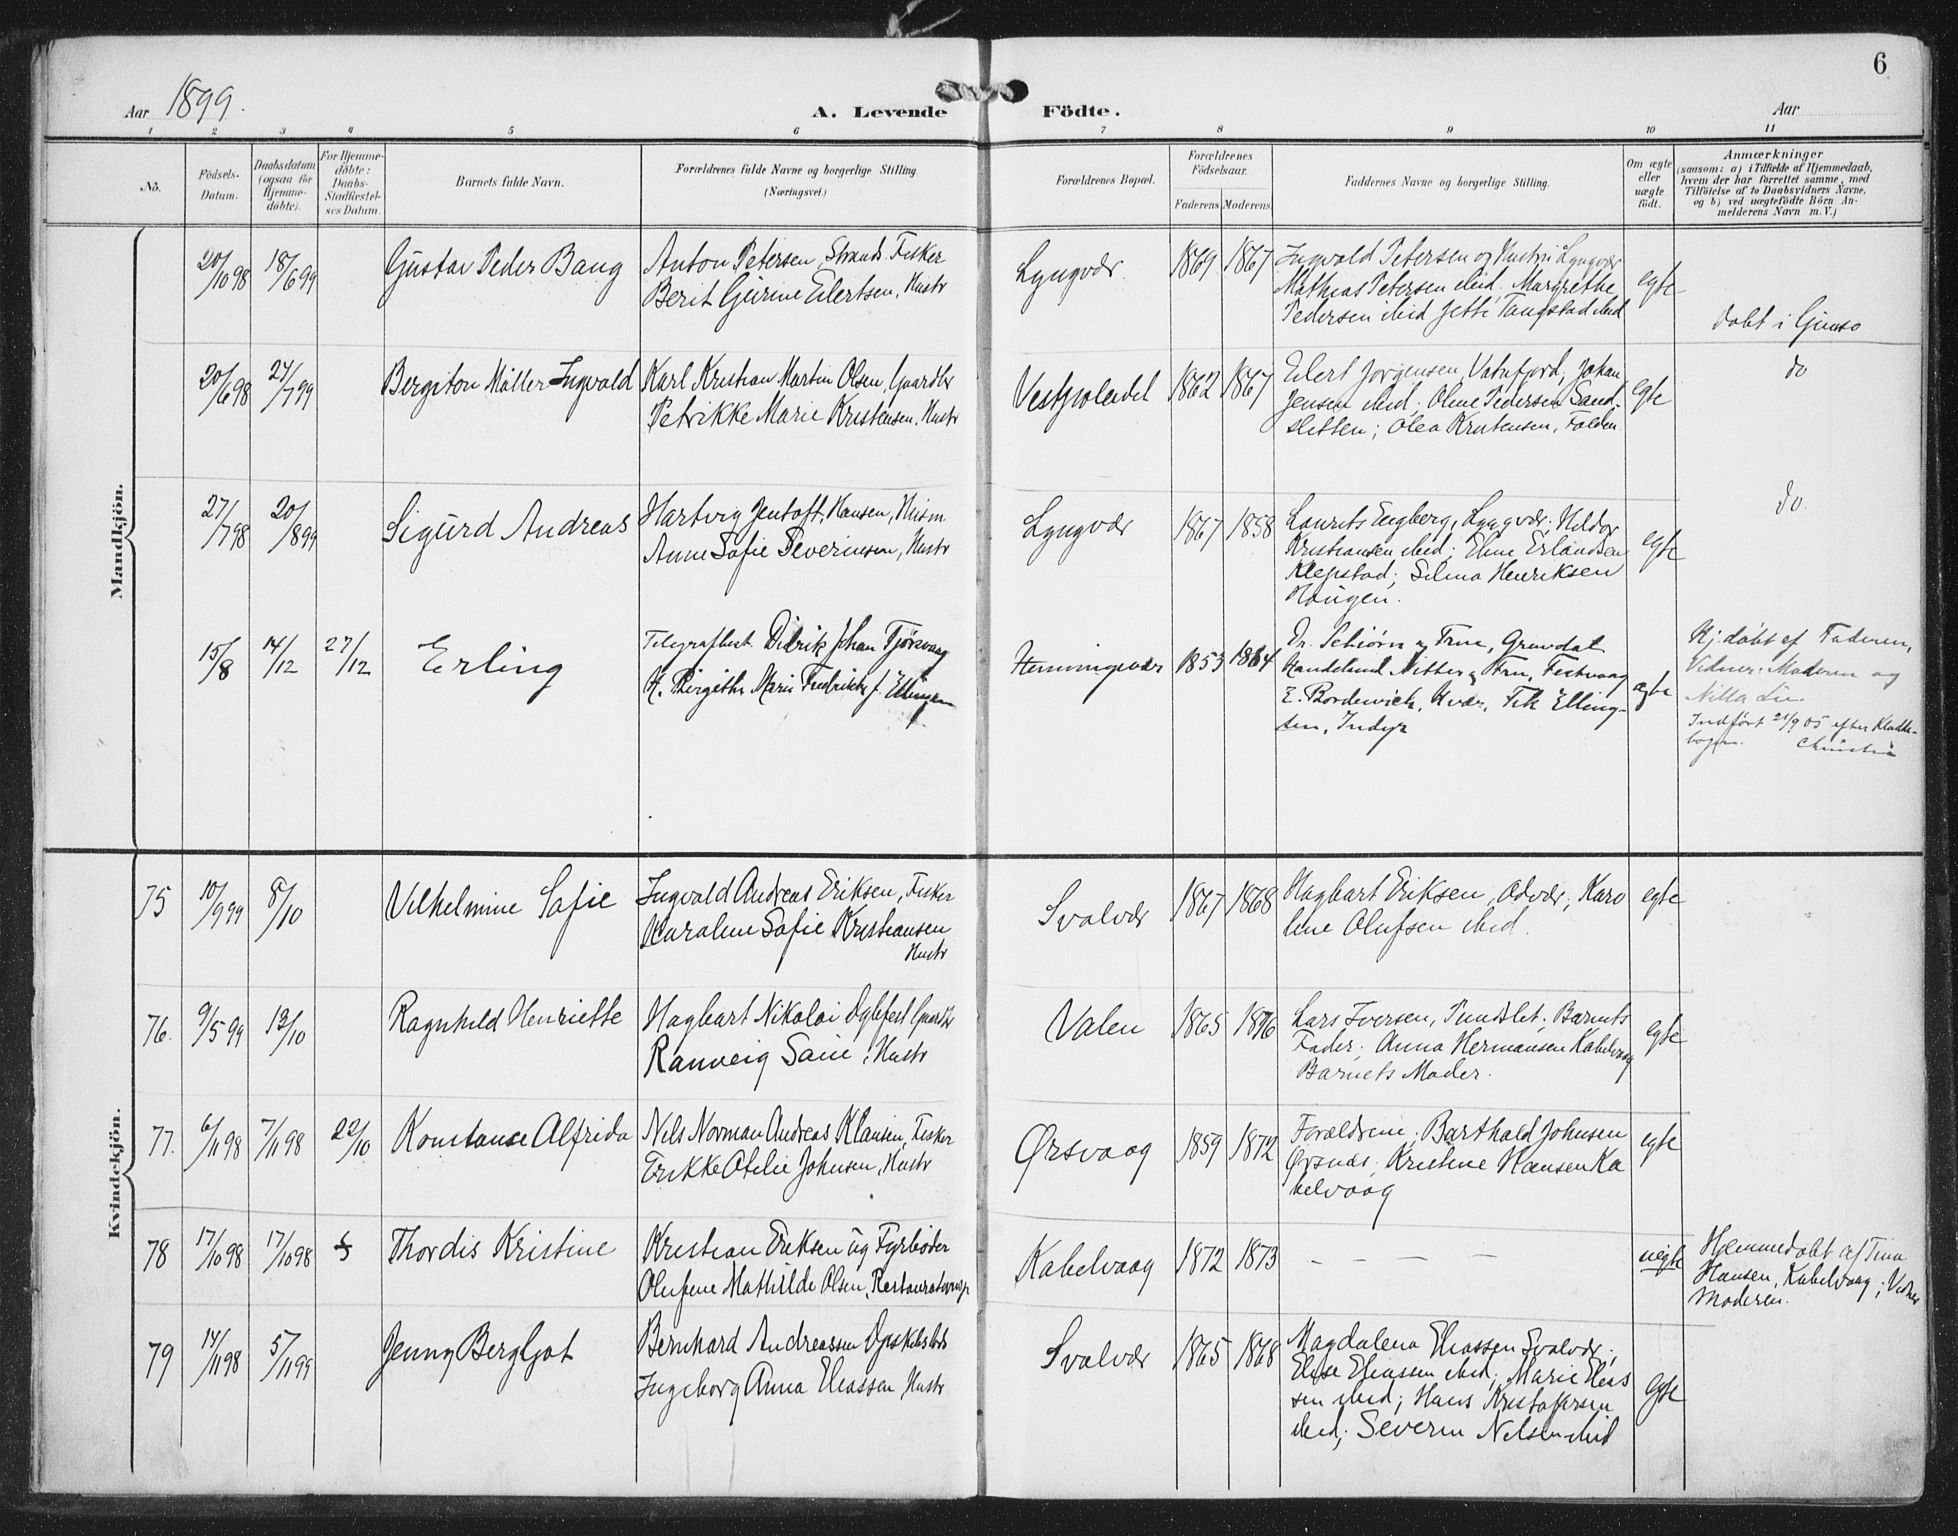 6
Aar 1899.
A. Levende Födte.
Aar
1 2 3 4 5 6 7 8 9 10 11
No.
Födsels-
Datum.
Daabsdatum
(ogsaa for
Hjemme-
döbte).
For Hjemme-
döbte:
Daabs-
Stadfæstel-
ses Datum.
Barnets fulde Navn.
Forældrenes fulde Navne og borgerlige Stilling.
(Næringsvei.)
Forældrenes Bopæl.
Forældrenes
Födselsaar.
Faderens Moderens
Faddernes Navne og borgerlige Stilling.
Om ægte
eller
uægte
födt.
Anmærkninger
(saasom: a) i Tilfælde af Hjemmedaab,
hvem der har forrettet samme, med
Tilföielse af to Daabsvidners Navne,
og b) ved uægtefödte Börn An-
melderens Navn m. V.)
Mandkjön.
20/1098 18/699 Gustav Peder Bang
Anton Petersen, Strands. Fisker
Berit Eilertsen, Hustr
Lyngvær. 1869 1867
Ingvald Petersen og Hustru Lyngvær
Mathias Petersen ibid. Margrethe
Pedersen ibid Jette Tangstad ibid
egte
döbt i Gimsö
20/698 24/799 Bergiton Möller Ingvald
Karl Kristian Martin Olsen, Gaardbr
Petrikke Marie Kristensen, Hustr
Vestpolendet 1862 1867
Eilert Jorgensen, Vatnfjord; Johan
Jensen ibid; Oline Pedersen Sand-
sletten; Olea Kristensen,
egte
do
27/798 20/899 Sigurd Andreas
Hartvig Jentoft Hansen, Husm
Anne Sofie Severinsen, Hustr
Lyngvær 1867 1858
Laurits Engberg, Lyngvær; Hildor
Kristiansen ibid; Eline Erlandsen
Klepstad; Selma Henriksen
Haugen.
egte
do.
15/8 14/12 27/12 Erling
Telegrafbest. Didrik Johan Tjörsvaag
H. Birgithe Marie Fredrikke f. Ellingsen
Henningsvær 1853 1864
Dr. Schiörn og Frue, Gravdal
Handelsmd Nitter og Fru, Festvaag
E. Bordewich, Hvær, Frk Elling-
sen, Indyr
ægte
Hj. döbt af Faderen,
Vidner: Moderen og
Nilla Lie
Indført 21/9 05 efter Kladde-
bogen.
Kvindekjön.
75 10/999 8/10 Vilhelmine Sofie
Ingvald Andreas Eriksen, Fisker
Karoline Sofie Kristiansen
Hustr
Svolvær 1867 1868
Hagbart Eriksen, Odvær; Karo
line Olufsen ibid.
egte
76. 9/599 13/10 Ragnhild Henriette
Hagbart Nikolai Gaardbr
Ranveig Saue, Hustr
Valen 1865 1876
Lars Iversen, Sundslet; Barnets
Fader; Anna Hermansen Kabelvaag
Barnets Moder.
egte
77. 6/1198 7/1198 22/10 Konstanse Alfrida
Nils Norman Andreas Klausen, Fisker
Erikke Otelie Johnsen, Hustr
Ørsvaag 1859 1872
Forældrene; Barthold Johnsen
Ørsnes; Kristine Hansen Ka
belvaag
egte
78 17/1098 17/1098 Thordis Kristine
Kristian Eriksen ug Fyrböder
Olufine Mathilde Olsen,
Kabelvaag 1872 1873
– – – –
uegte
Hjemmedöbt af Tina
Hansen, Kabelvaag; Vidner
Moderen.
79 14/1198 5/1199 Jenny Bergljot
Bernhard Andreassen
Ingeborg Anna Eliassen Hustr
Svolvær 1865 1868
Magdalena Eliassen Svolvær;
Else Eliassen ibid; Marie Elias
sen ibid; Hans Kristoffersen
ibid; Severin Nilsen ibid
egte